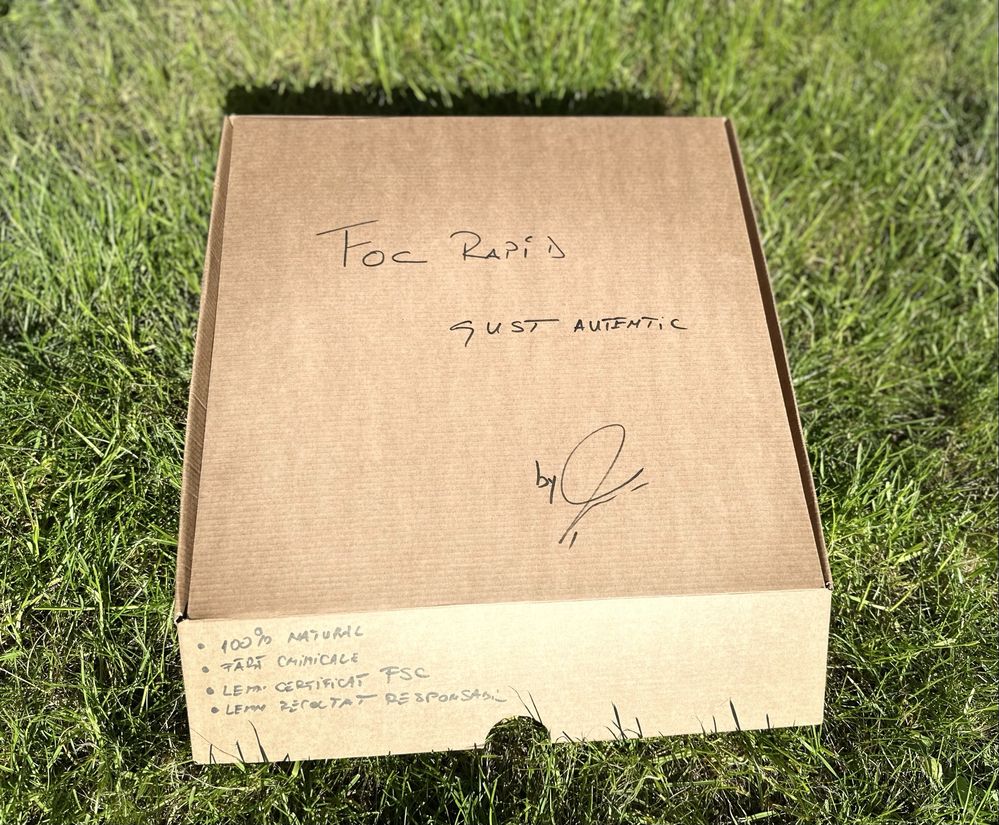 Foc Rapid
GUST AUTENTIC
by
• 100% NATURAL
• FĂRĂ CHIMICALE
• LEMN CERTIFICAT FSC
• LEMN RECOLTAT RESPONSABIL